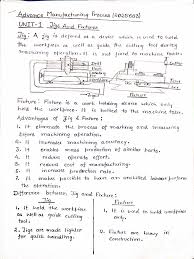 Advance Manufacturing Process
UNIT-1 Jigs And Fixtures
Jig: A jig is defined as a device which is used to hold
the workpiece as well as guide the cutting tool during
machining operation. It is not fixed to machine table.
Fixture: Fixture is a work holding device which only
hold the workpiece. It is bolted to the machine table.
Advantages of Jig & Fixture:
1. It eliminates the process of marking and measuring
before machining operation.
2. It increases machining accuracy.
3. It enables mass production of similar parts.
4. It reduces operator effort.
5. It reduces cost of manufacturing.
6. It increases production rate.
7. It makes possible to have an unskilled labour perform the operation.
Difference between Jig and Fixture:
Jig
Fixture
1. It hold the workpiece
as well as guide cutting
tool.
1. It is used to hold workpiece
only.
2. Jigs are made lighter
for quick handling.
2. Fixture are heavy in
construction.